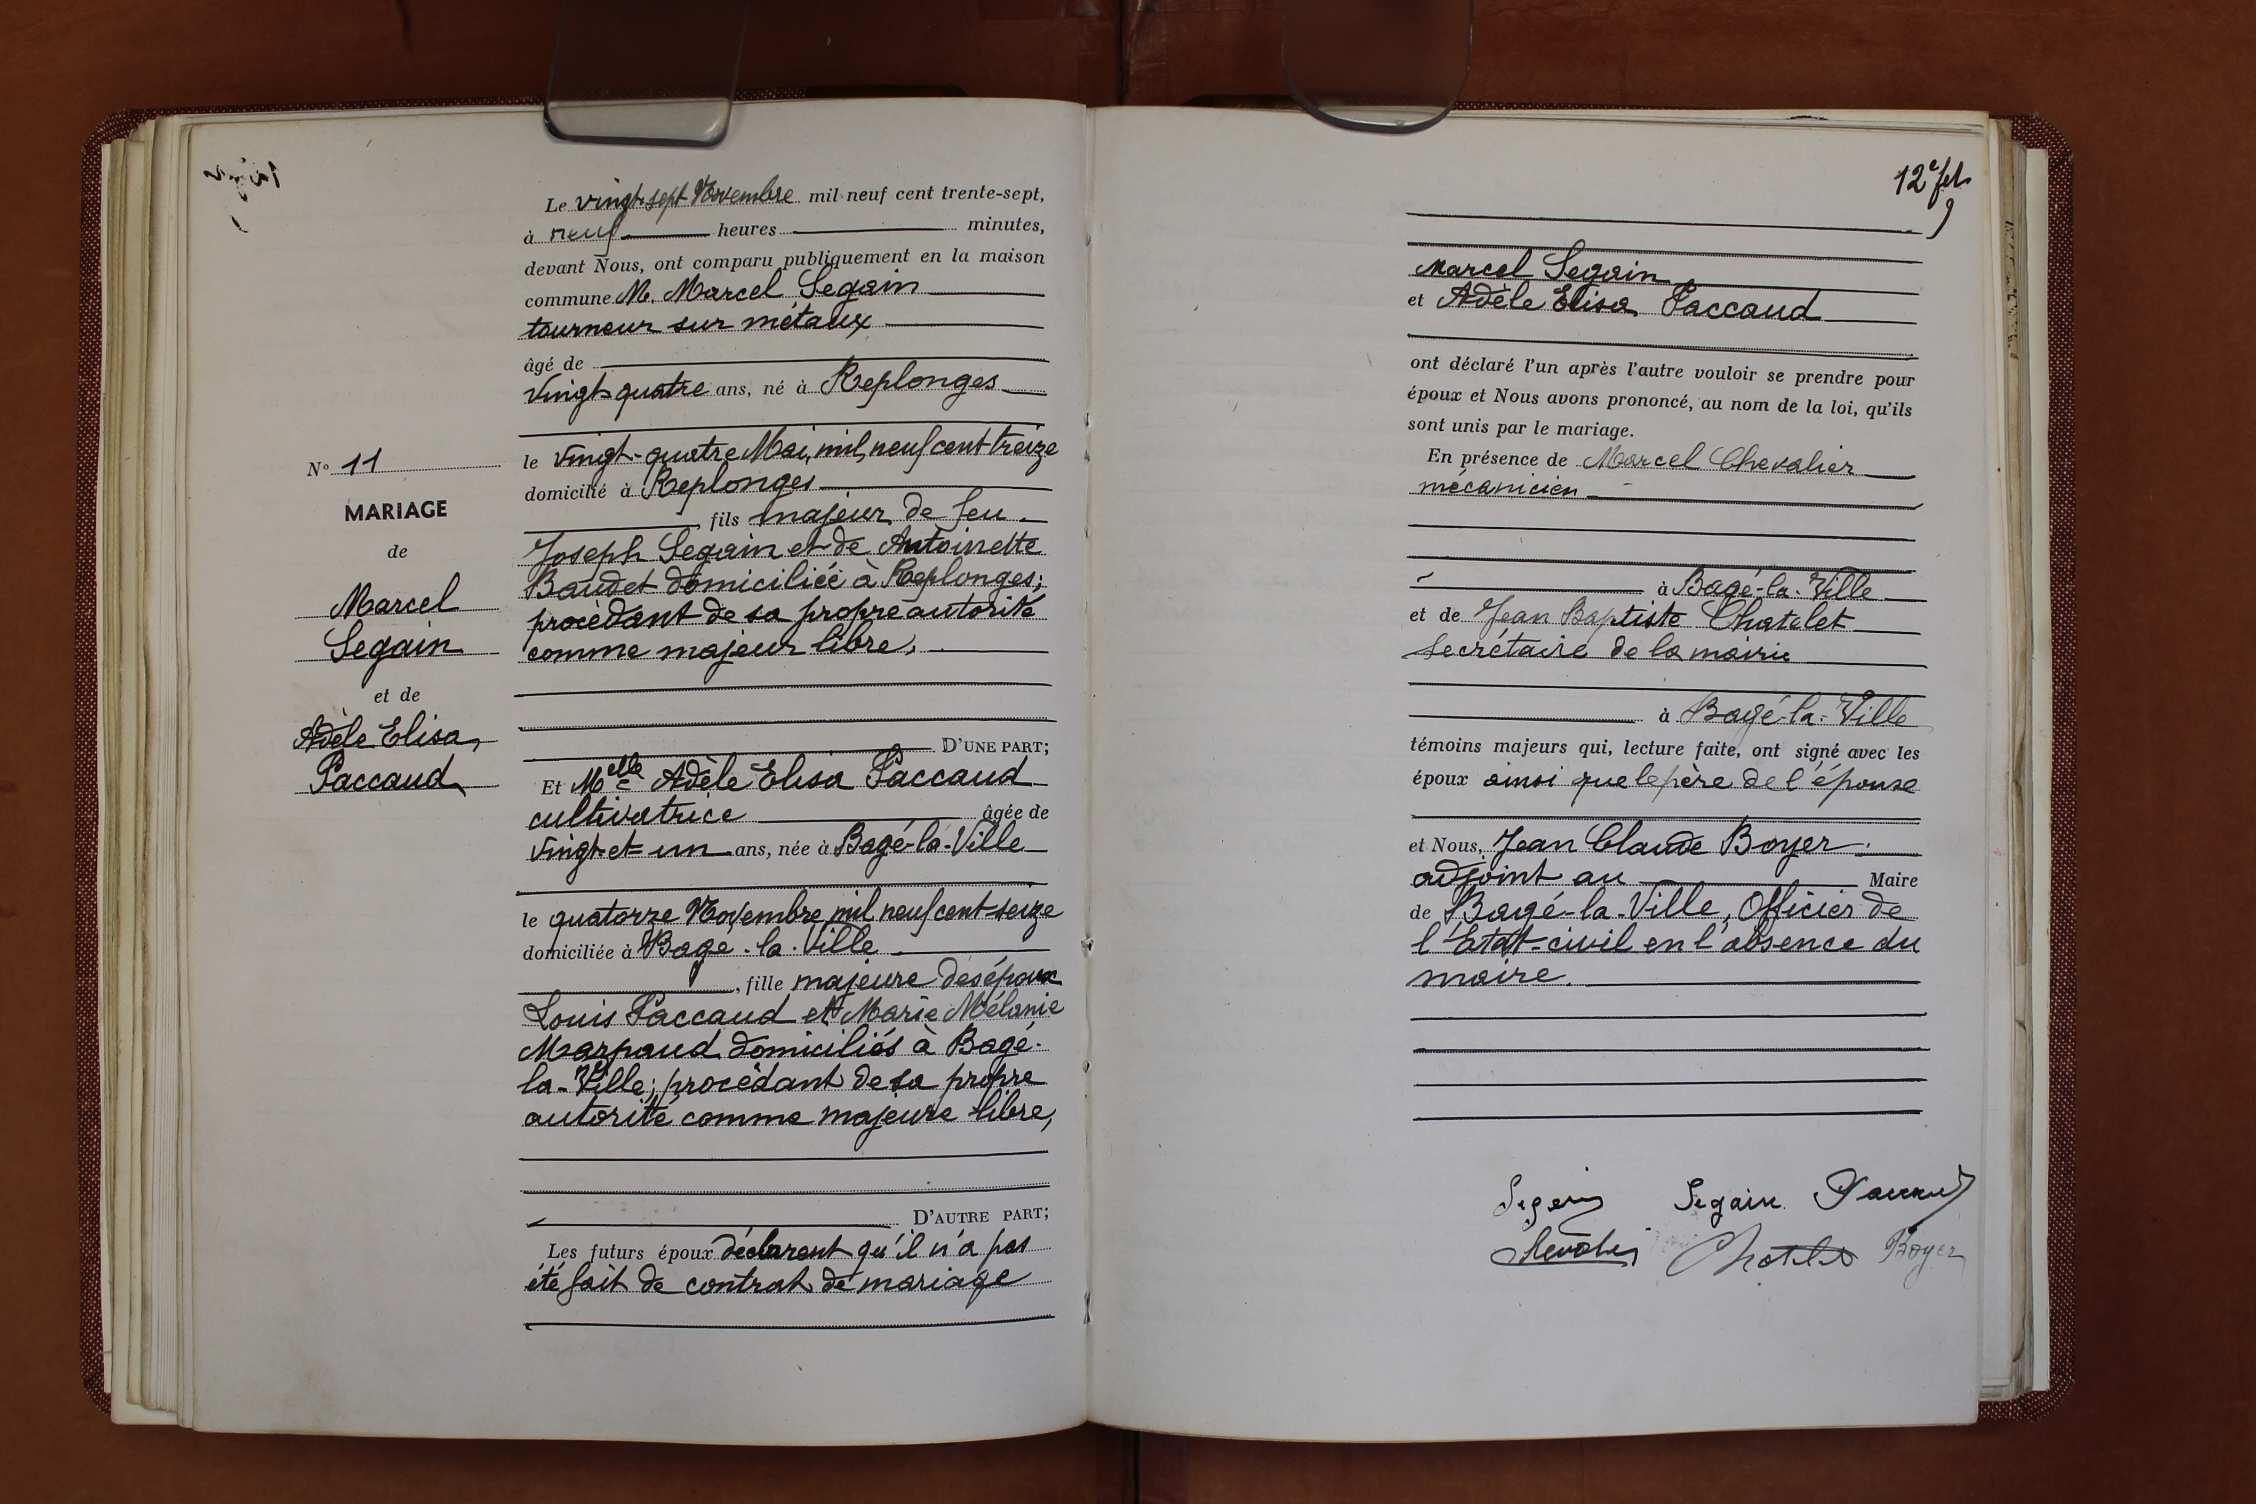 N° 11
MARIAGE
de
Marcel
Segain
et de
Adèle Elisa
Paccaud
Le vingt-sept Novembre mil neuf cent trente-sept,
à neuf heures minutes,
devant Nous, ont comparu publiquement en la maison
commune M. Marcel Segain
tourneur sur métaux
âgé de
vingt-quatre ans, né à Replonges
le vingt-quatre Mai mil neuf cent treize
domicilié à Replonges
, fils majeur de feu
Joseph Segain et de Antoinette
Baudet domiciliée à Replonges;
procédant de sa propre autorité
comme majeur libre,
D'UNE PART;
Et Melle Adèle Elisa Paccaud
cultivatrice âgée de
vingt-et-un ans, née à Bagé-la-Ville
le quatorze Novembre mil neuf cent seize
domiciliée à Bagé-la-Ville
, fille majeure des époux
Louis Paccaud et Marie Mélanie
Marpaud domiciliés à Bagé-
la-Ville; procédant de sa propre
autorité comme majeure libre,
D'AUTRE PART;
Les futurs époux déclarent qu'il n'a pas
été fait de contrat de mariage
12e fet
Marcel Segain
et Adèle Elisa Paccaud
ont déclaré l'un après l'autre vouloir se prendre pour
époux et Nous avons prononcé, au nom de la loi, qu'ils
sont unis par le mariage.
En présence de Marcel Chevalier
mécanicien
à Bagé-la-Ville
et de Jean Baptiste Chatelet
secrétaire de la mairie
à Bagé-la-Ville
témoins majeurs qui, lecture faite, ont signé avec les
époux ainsi que le père de l'épouse
et Nous, Jean Claude Boyer
adjoint au Maire
de Bagé-la-Ville, Officier de
l'Etat-civil en l'absence du
maire.
Segain Paccaud
Boyer